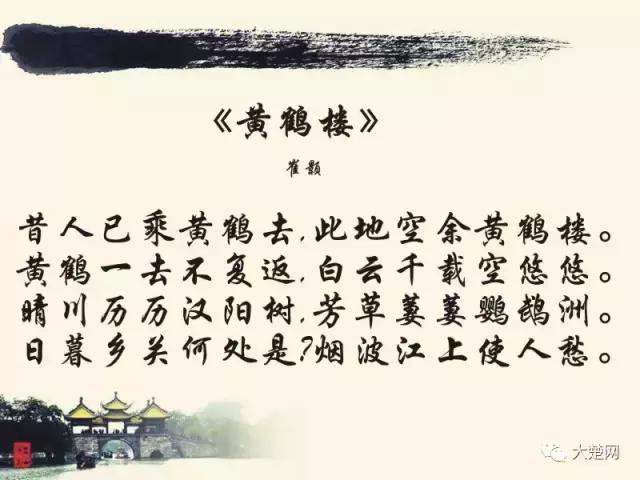 《黄鹤楼》
崔颢
昔人已乘黄鹤去,此地空余黄鹤楼。
黄鹤一去不复返,白云千载空悠悠。
晴川历历汉阳树,芳草萋萋鹦鹉洲。
日暮乡关何处是?烟波江上使人愁。
大楚网